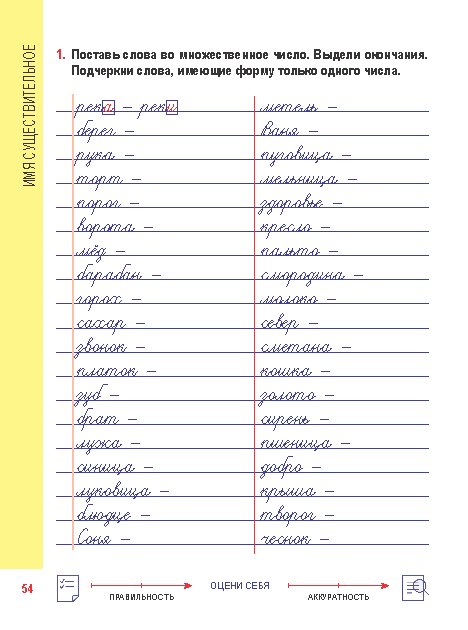 ИМЯ СУЩЕСТВИТЕЛЬНОЕ
1. Поставь слова во множественное число. Выдели окончания.
Подчеркни слова, имеющие форму только одного числа.
река – реки
берег –
рука –
торт –
порог –
ворота –
мёд –
барабан –
горох –
сахар –
звонок –
платок –
зуб –
брат –
лужа –
синица –
луковица –
блюдце –
Соня –
метель –
Ваня –
пуговица –
мельница –
здоровье –
кресло –
пальто –
смородина –
молоко –
север –
сметана –
кошка –
золото –
сирень –
пшеница –
добро –
крыша –
творог –
чеснок –
54
ПРАВИЛЬНОСТЬ
ОЦЕНИ СЕБЯ
АККУРАТНОСТЬ